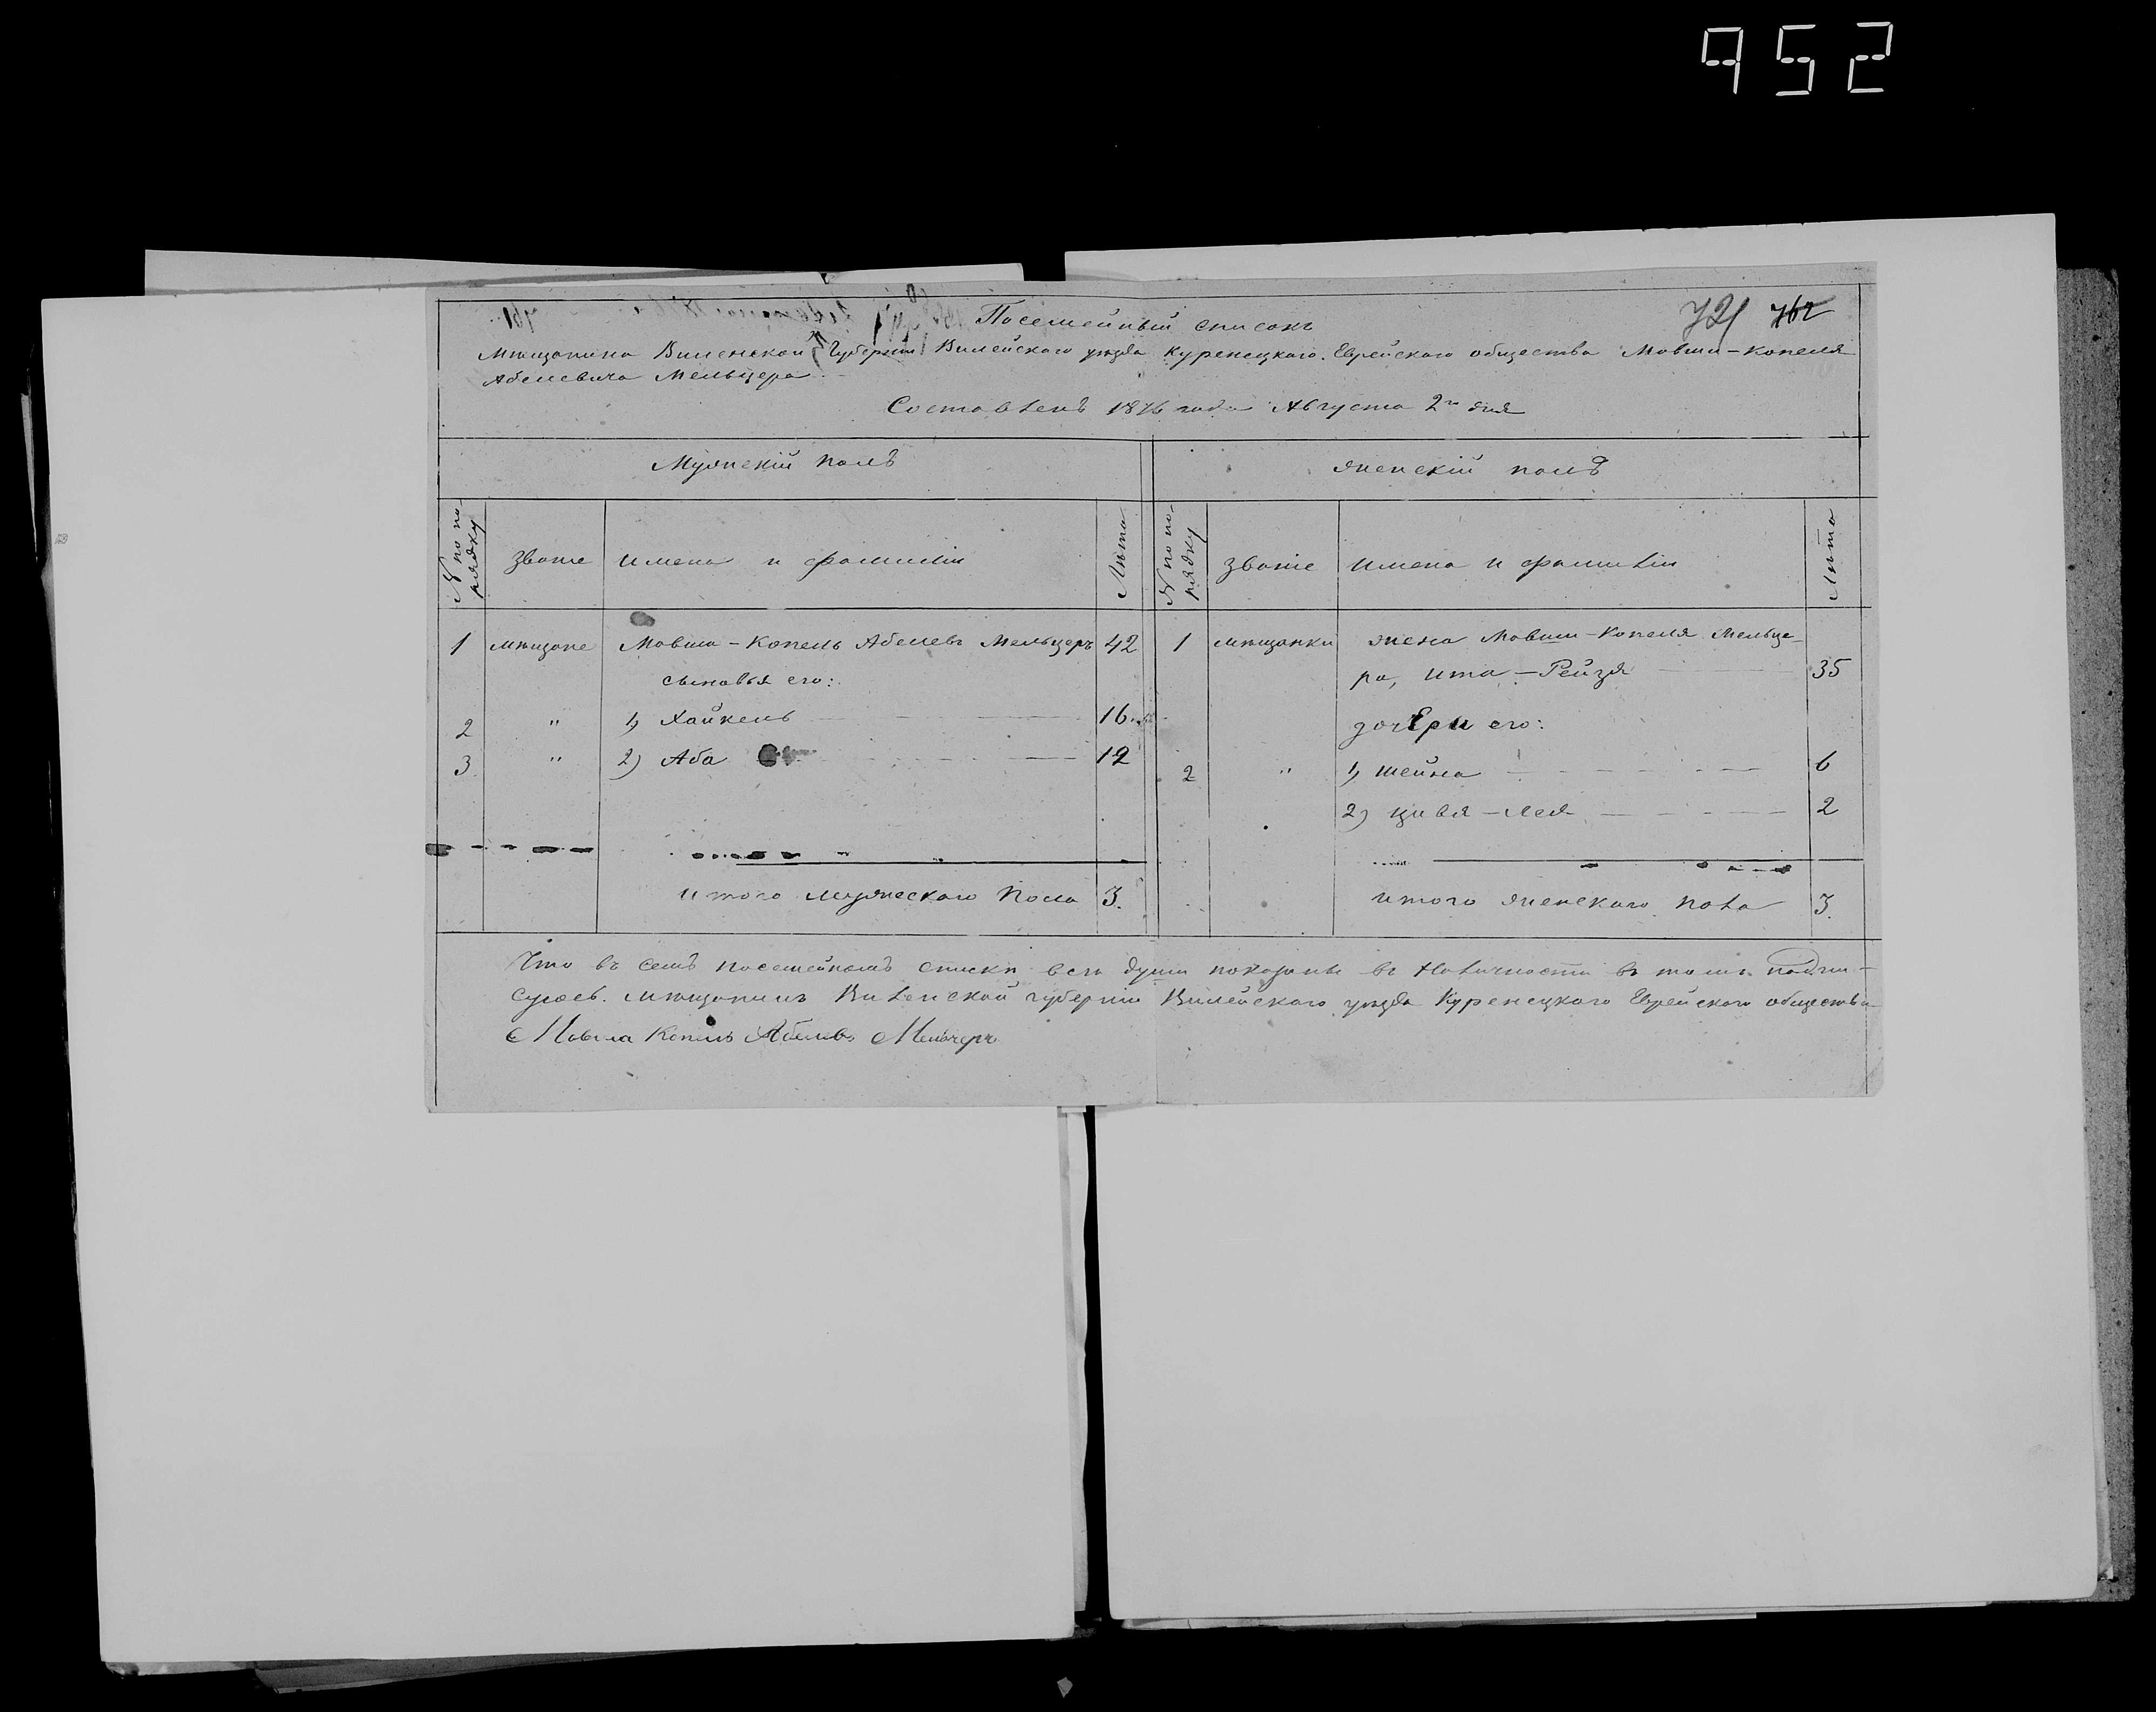 952
721 762
Посемейный списокъ
Мѣщанина Виленской Губерніи Вилейскаго уѣзда Куренецкаго Еврейскаго общества Мовши-Копеля
Абелевича Мельцера
Составленъ 1876 года Августа 2го дня
Мужескій полъ
Женскій полъ
№ по по-
рядку
Званіе
Имена и фамиліи
Лѣта
№ по по-
рядку
Званіе
Имена и фамиліи
Лѣта
1 мѣщане Мовша-Копель Абелевъ Мельцеръ 42
сыновья его:
2 " 1) Хайкель 16
3 " 2) Аба 12
Итого мужескаго пола 3.
1 мѣщанки жена Мовши-Копеля Мельце-
ра, Ита-Рейзя 35
дочери его:
2 " 1) Шейна 6
2) Цивя-Лея 2
Итого женскаго пола 3.
Что въ семъ посемейномъ списки всѣ души показаны въ наличности въ томъ подпи-
суюсь. Мѣщанинъ Виленской губерніи Вилейскаго уѣзда Куренецкаго Еврейскаго общества
Мовша Копель Абелевъ Мельцеръ